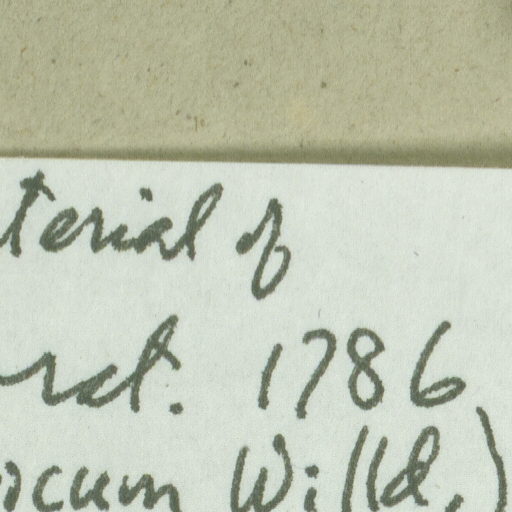 terial of
rct. 1786
icum Willd.)